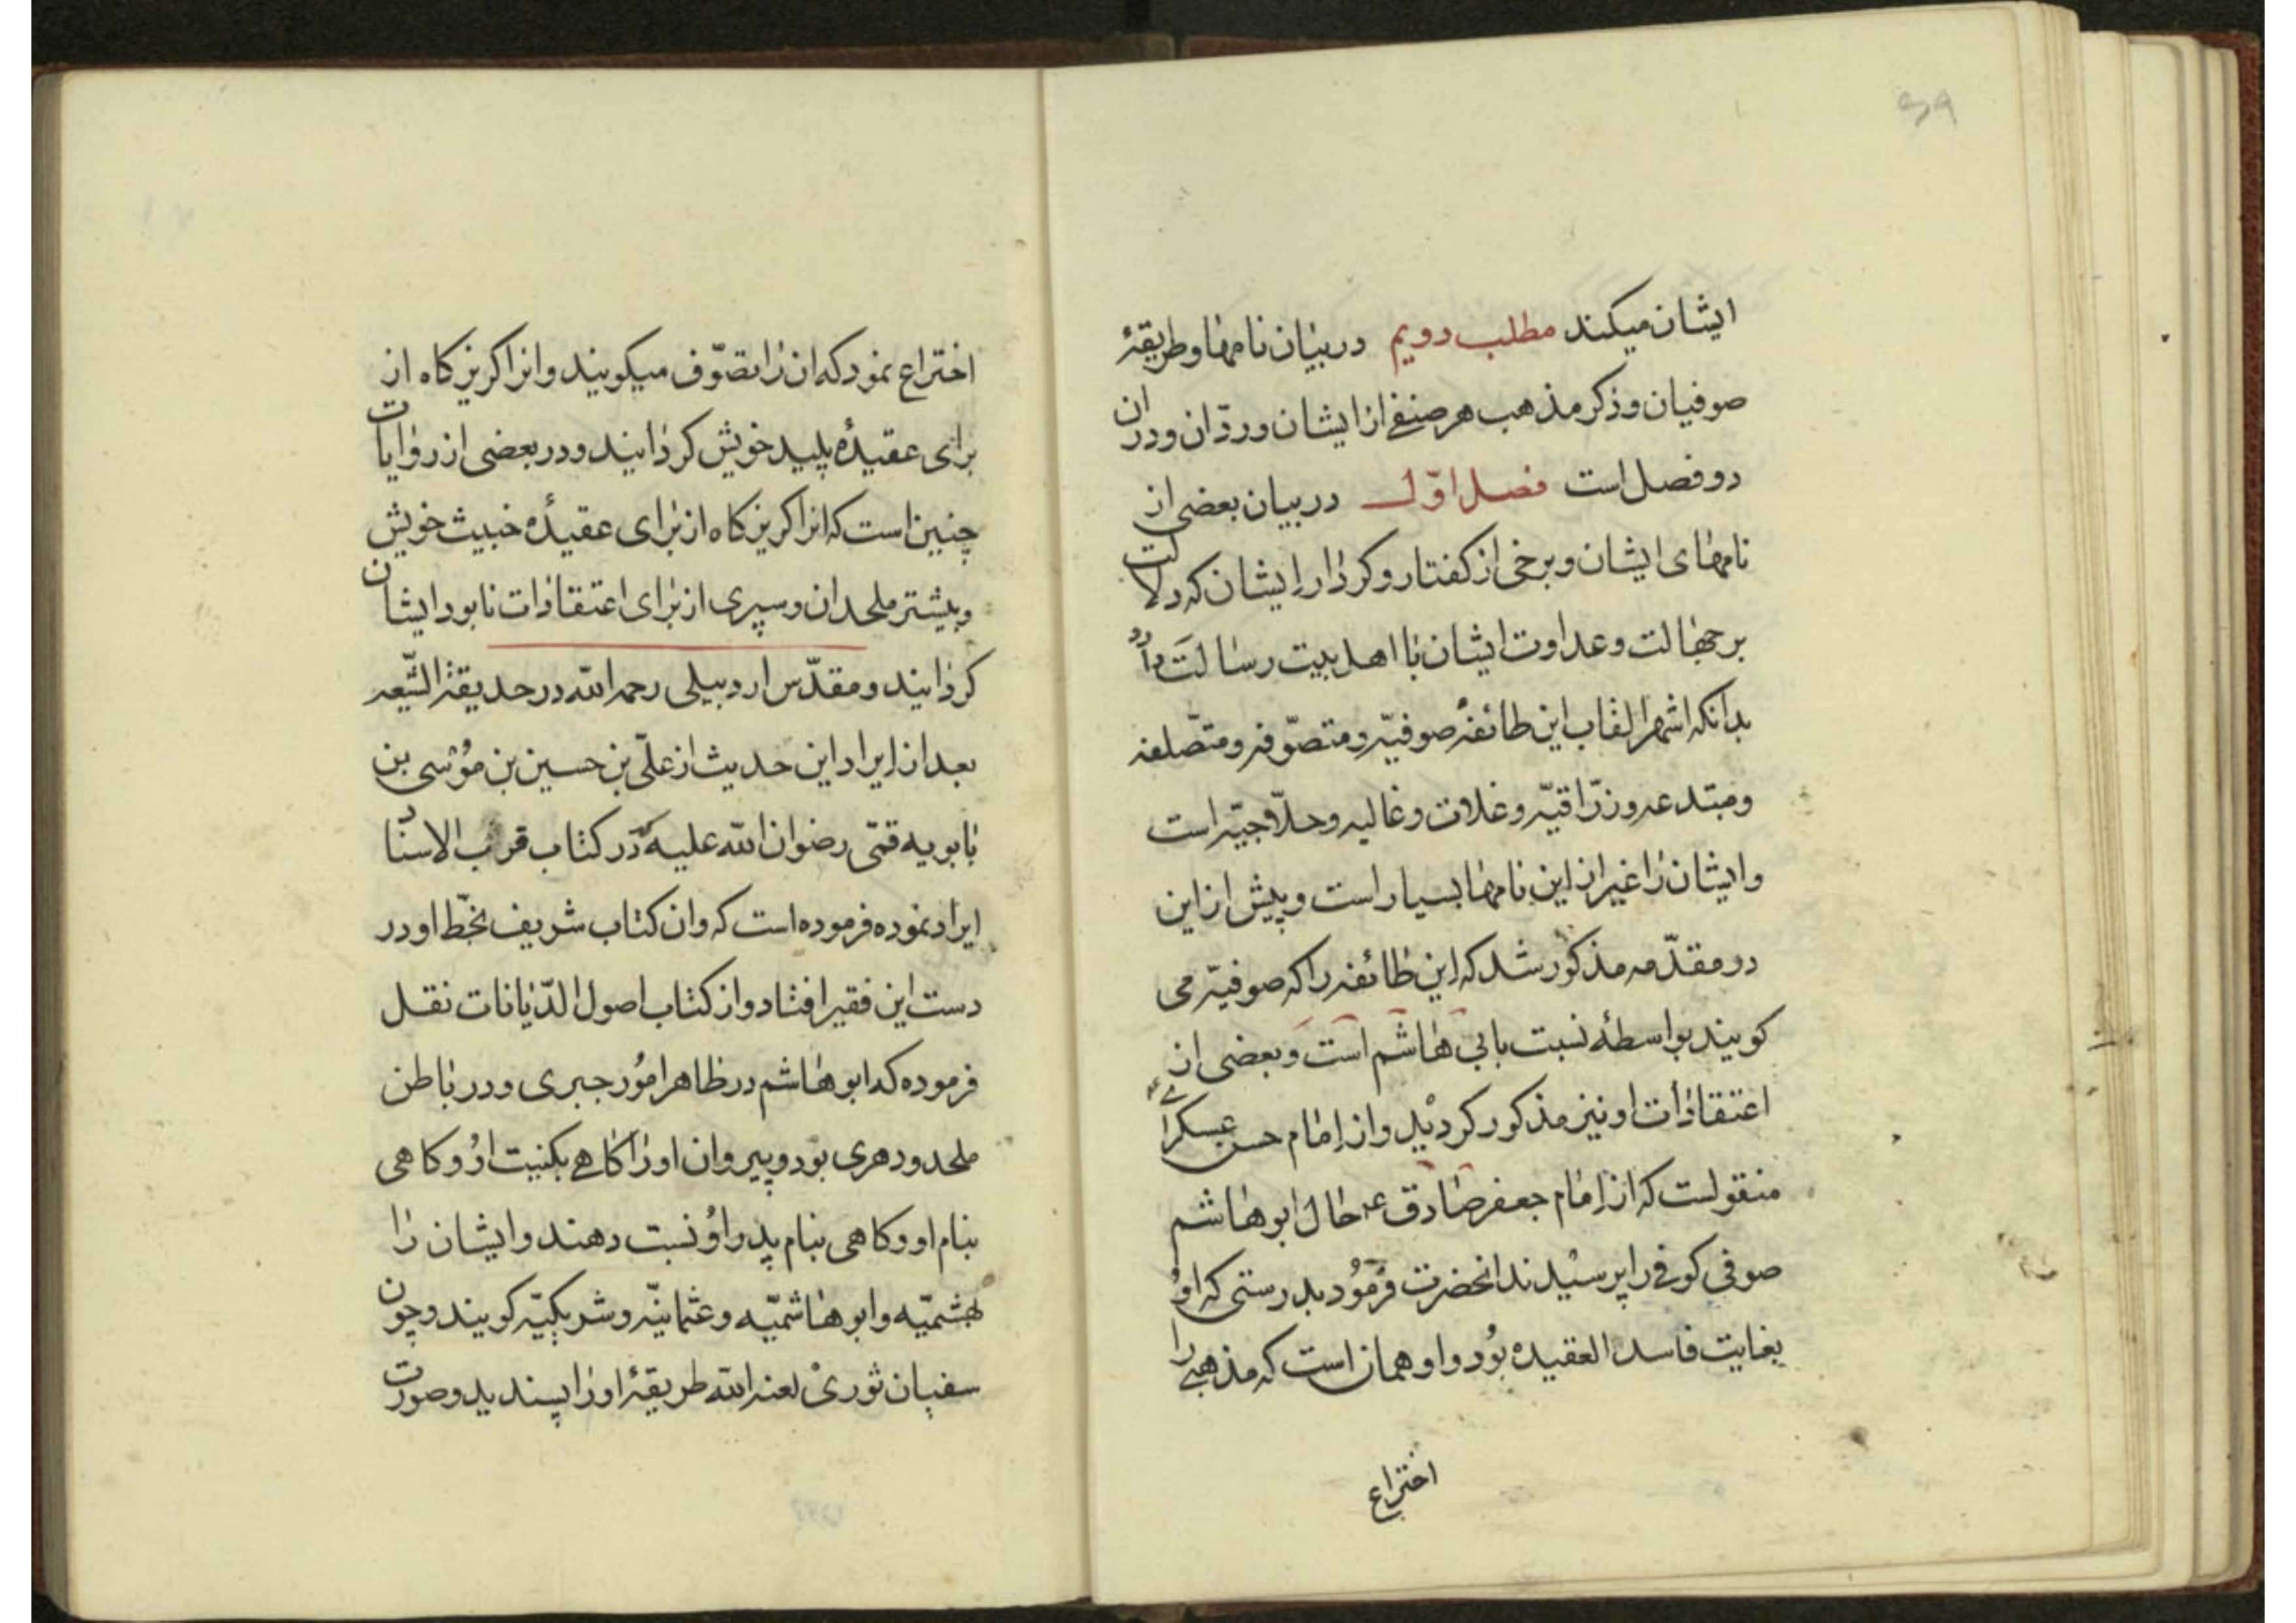 ۳۹
ایشان میکند مطلب دویم در بیان نامها و طریقهٔ
صوفیان و ذکر مذهب هر صنفے از ایشان و ردّ ان و در ان
دو فصل است فصل اوّل در بیان بعضی از
نامهای ایشان و برخی از کفتار و کردار ایشان که دلالت
بر جهالت و عداوت ایشان با اهل بیت رسالت دارد
بدانکه اشهر القاب این طائفه صوفیّه و متصوّفه و متصلفه
و مبتدعه و زرّاقیّه و غلات و غالیه و حلّاجیّه است
و ایشان را غیر از این نامها بسیار است و پیش از این
در مقدّمه مذکور شد که این طائفه را که صوفیّه می
کویند بواسطهٔ نسبت بابی هاشم است و بعضی از
اعتقادات او نیز مذکور کردید و از امام حسن عسکرےؑ
منقولست که از امام جعفر صادق ع حال ابو هاشم
صوفی کوفے را پرسیدند انحضرت فرمُود بدرستی که اوُ
بغایت فاسد العقیده بُود و او همان است که مذهبے را
اختراع
اختراع نمود که ان را تصوّف میکویند و انرا کریزکاه از
برای عقیدهٔ پلید خویش کردانید و در بعضی از روایات
چنین است که انرا کریزکاه از برای عقیدهٔ خبیث خویش
و بیشتر ملحدان و سپری از برای اعتقادات نابود ایشان
کردانید و مقدّس اردبیلی رحمه الله در حدیقة الشّیعه
بعد از ایراد این حدیث از علیّ بن حسین بن مؤسی بن
بابویه قمّی رضوان الله علیه که در کتاب قرب الاسناد
ایراد نموده فرموده است که وان کتاب شریف بخطّ او در
دست این فقیر افتاد و از کتاب اصول الدّیانات نقل
فرموده که ابو هاشم در ظاهر امُور جبری و در باطن
ملحد و دهری بود و پیروان او را کاهے بکنیت اوُ و کاهی
بنام او و کاهی بنام پدر اوُ نسبت دهند و ایشان را
بهشمیّه و ابو هاشمیّه و عثمانیّه و شریکیّه کویند و چون
سفیان ثوریْ لعنه الله طریقهٔ او را پسندید و صورت